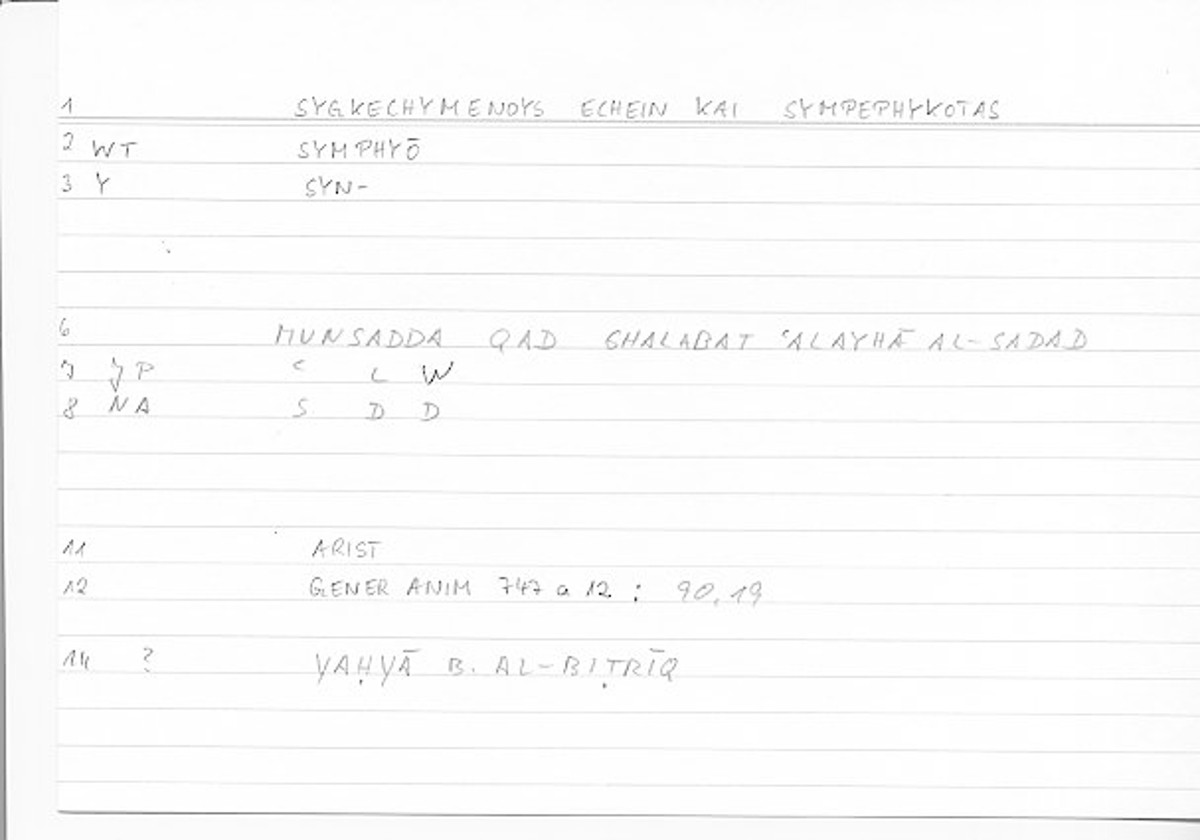 1 SYGKECHYMENOYS ECHEIN KAI SYMPEPHYKOTAS
2 WT SYMPHYŌ
3 Y SYN-
6 MUNSADDA QAD GHALABAT ʿALAYHĀ AL-SADAD
7 JP ʿ L W
8 NA S D D
11 ARIST
12 GENER ANIM 747 a 12 : 90,19
14 ? YAḤYĀ B. AL-BIṬRĪQ